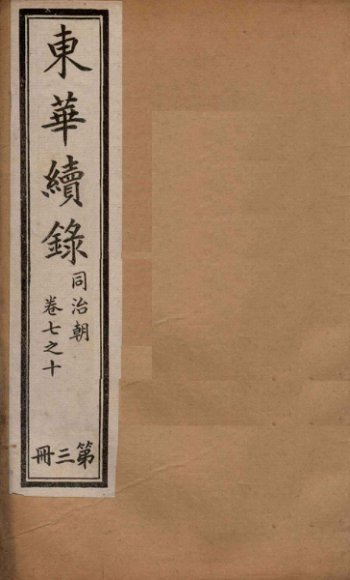 東華續錄
同治朝
卷七之十
第三冊